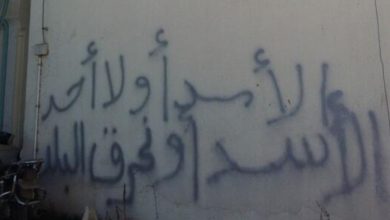 الأسد أو لا أحد
الأسد أو نحرق البلد